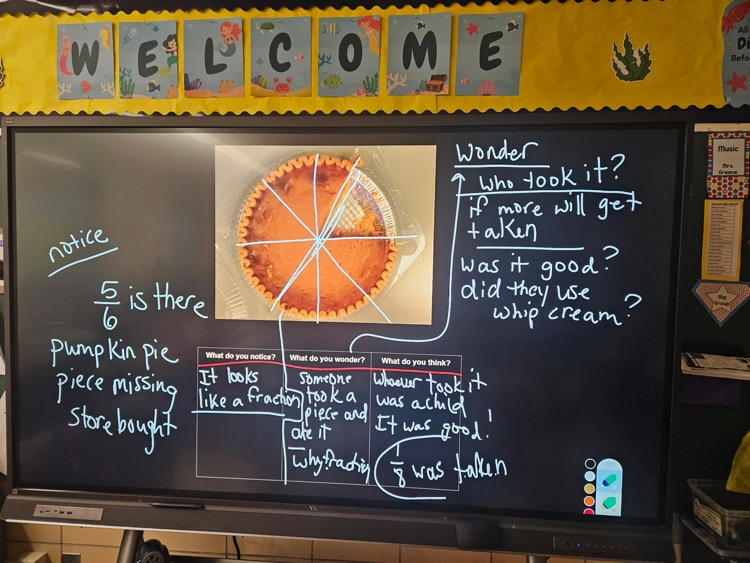 WELCOME
notice
5/6 is there
pumpkin pie
piece missing
store bought
wonder
who took it?
if more will get
taken
was it good?
did they use
whip cream?
What do you notice?
It looks
like a fraction
What do you wonder?
someone
took a
piece and
ate it
why fraction
What do you think?
whoever took it
was a child
It was good!
1/8 was taken
Music
Mrs.
Greene
Big
Group
All
Di
Befo